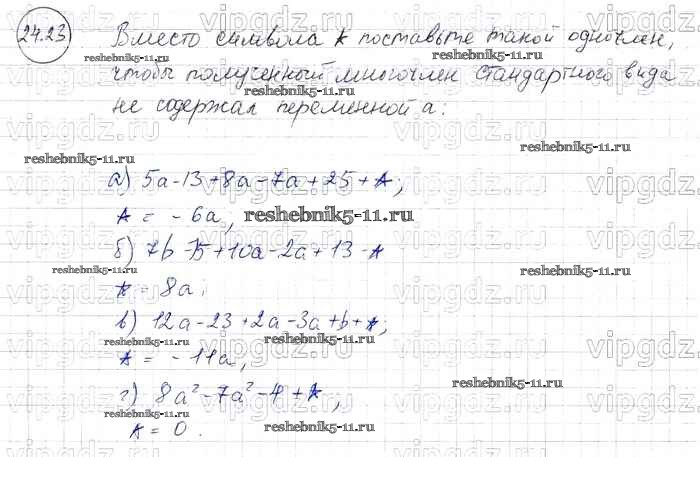 24.23 Вместо символа * поставьте такой одночлен,
чтобы полученный многочлен стандартного вида
не содержал переменной а:
а) 5a-13+8a-7a+25+*;
* = -6a,
б) 7b-15+10a-2a+13-*
* = 8a;
в) 12a-23+2a-3a+b+*;
* = -11a,
г) 8a²-7a²-4+*;
* = 0.
reshebnik5-11.ru
vipgdz.ru